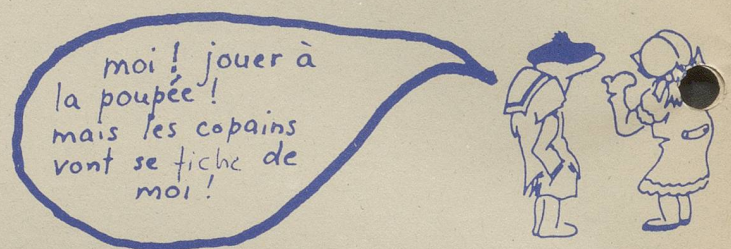 moi ! jouer à
la poupée !
mais les copains
vont se fiche de
moi !